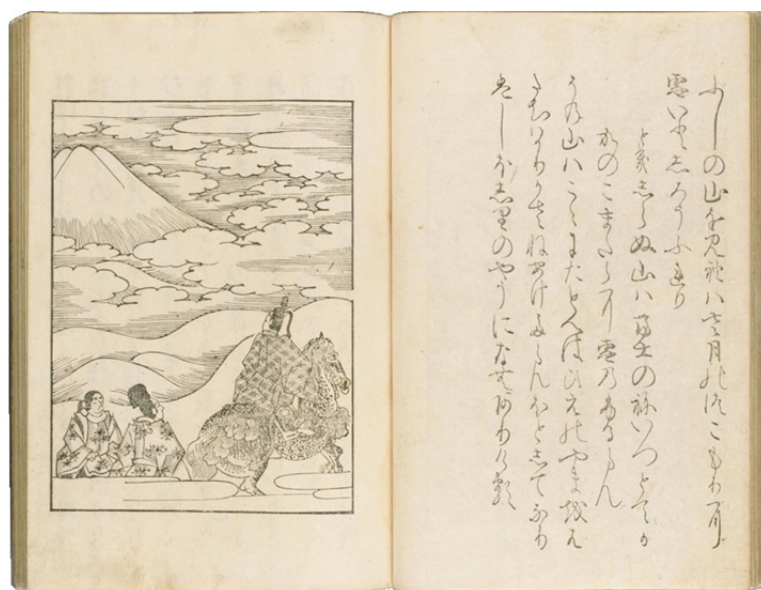 ふしの山を見れハさ月のつこもりに
雪いとしろうふれり
時しらぬ山ハ冨士のねいつとてか
かのこまたらに雪のふるらん
その山ハこゝにたとへはひえのやまをは
たちはかりかさねあけたらんほとしてなり
はしほしりのやうになむありける